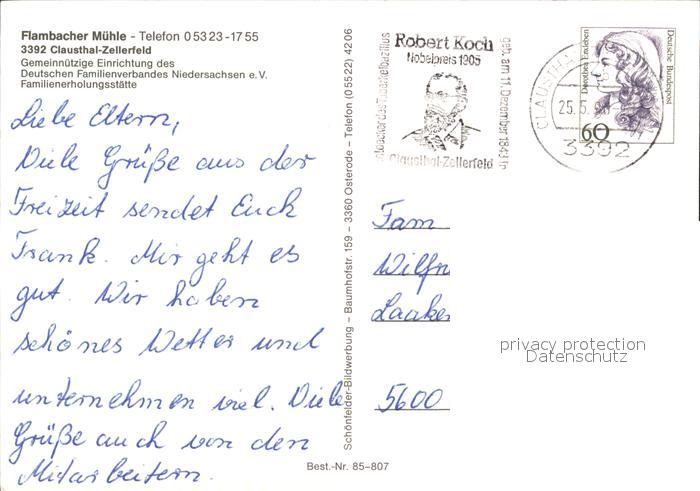 Flambacher Mühle - Telefon 0 53 23 - 17 55
3392 Clausthal-Zellerfeld
Gemeinnützige Einrichtung des
Deutschen Familienverbandes Niedersachsen e. V.
Familienerholungsstätte
Liebe Eltern,
Viele Grüße aus der
Freizeit sendet Euch
Frank. Mir geht es
gut. Wir haben
schönes Wetter und
unternehmen viel. Viele
Grüße auch von den
Mitarbeitern.
Schönfelder-Bildwerbung – Baumhofstr. 159 – 3360 Osterode – Telefon (0 55 22) 42 06
Best.-Nr. 85-807
Robert Koch
Nobelpreis 1905
geb. am 11. Dezember 1843 in
Clausthal-Zellerfeld
25.5.
3392
Dorothea Erxleben
Deutsche Bundespost
60
Fam
Wilfr
Laaker
5600
privacy protection
Datenschutz